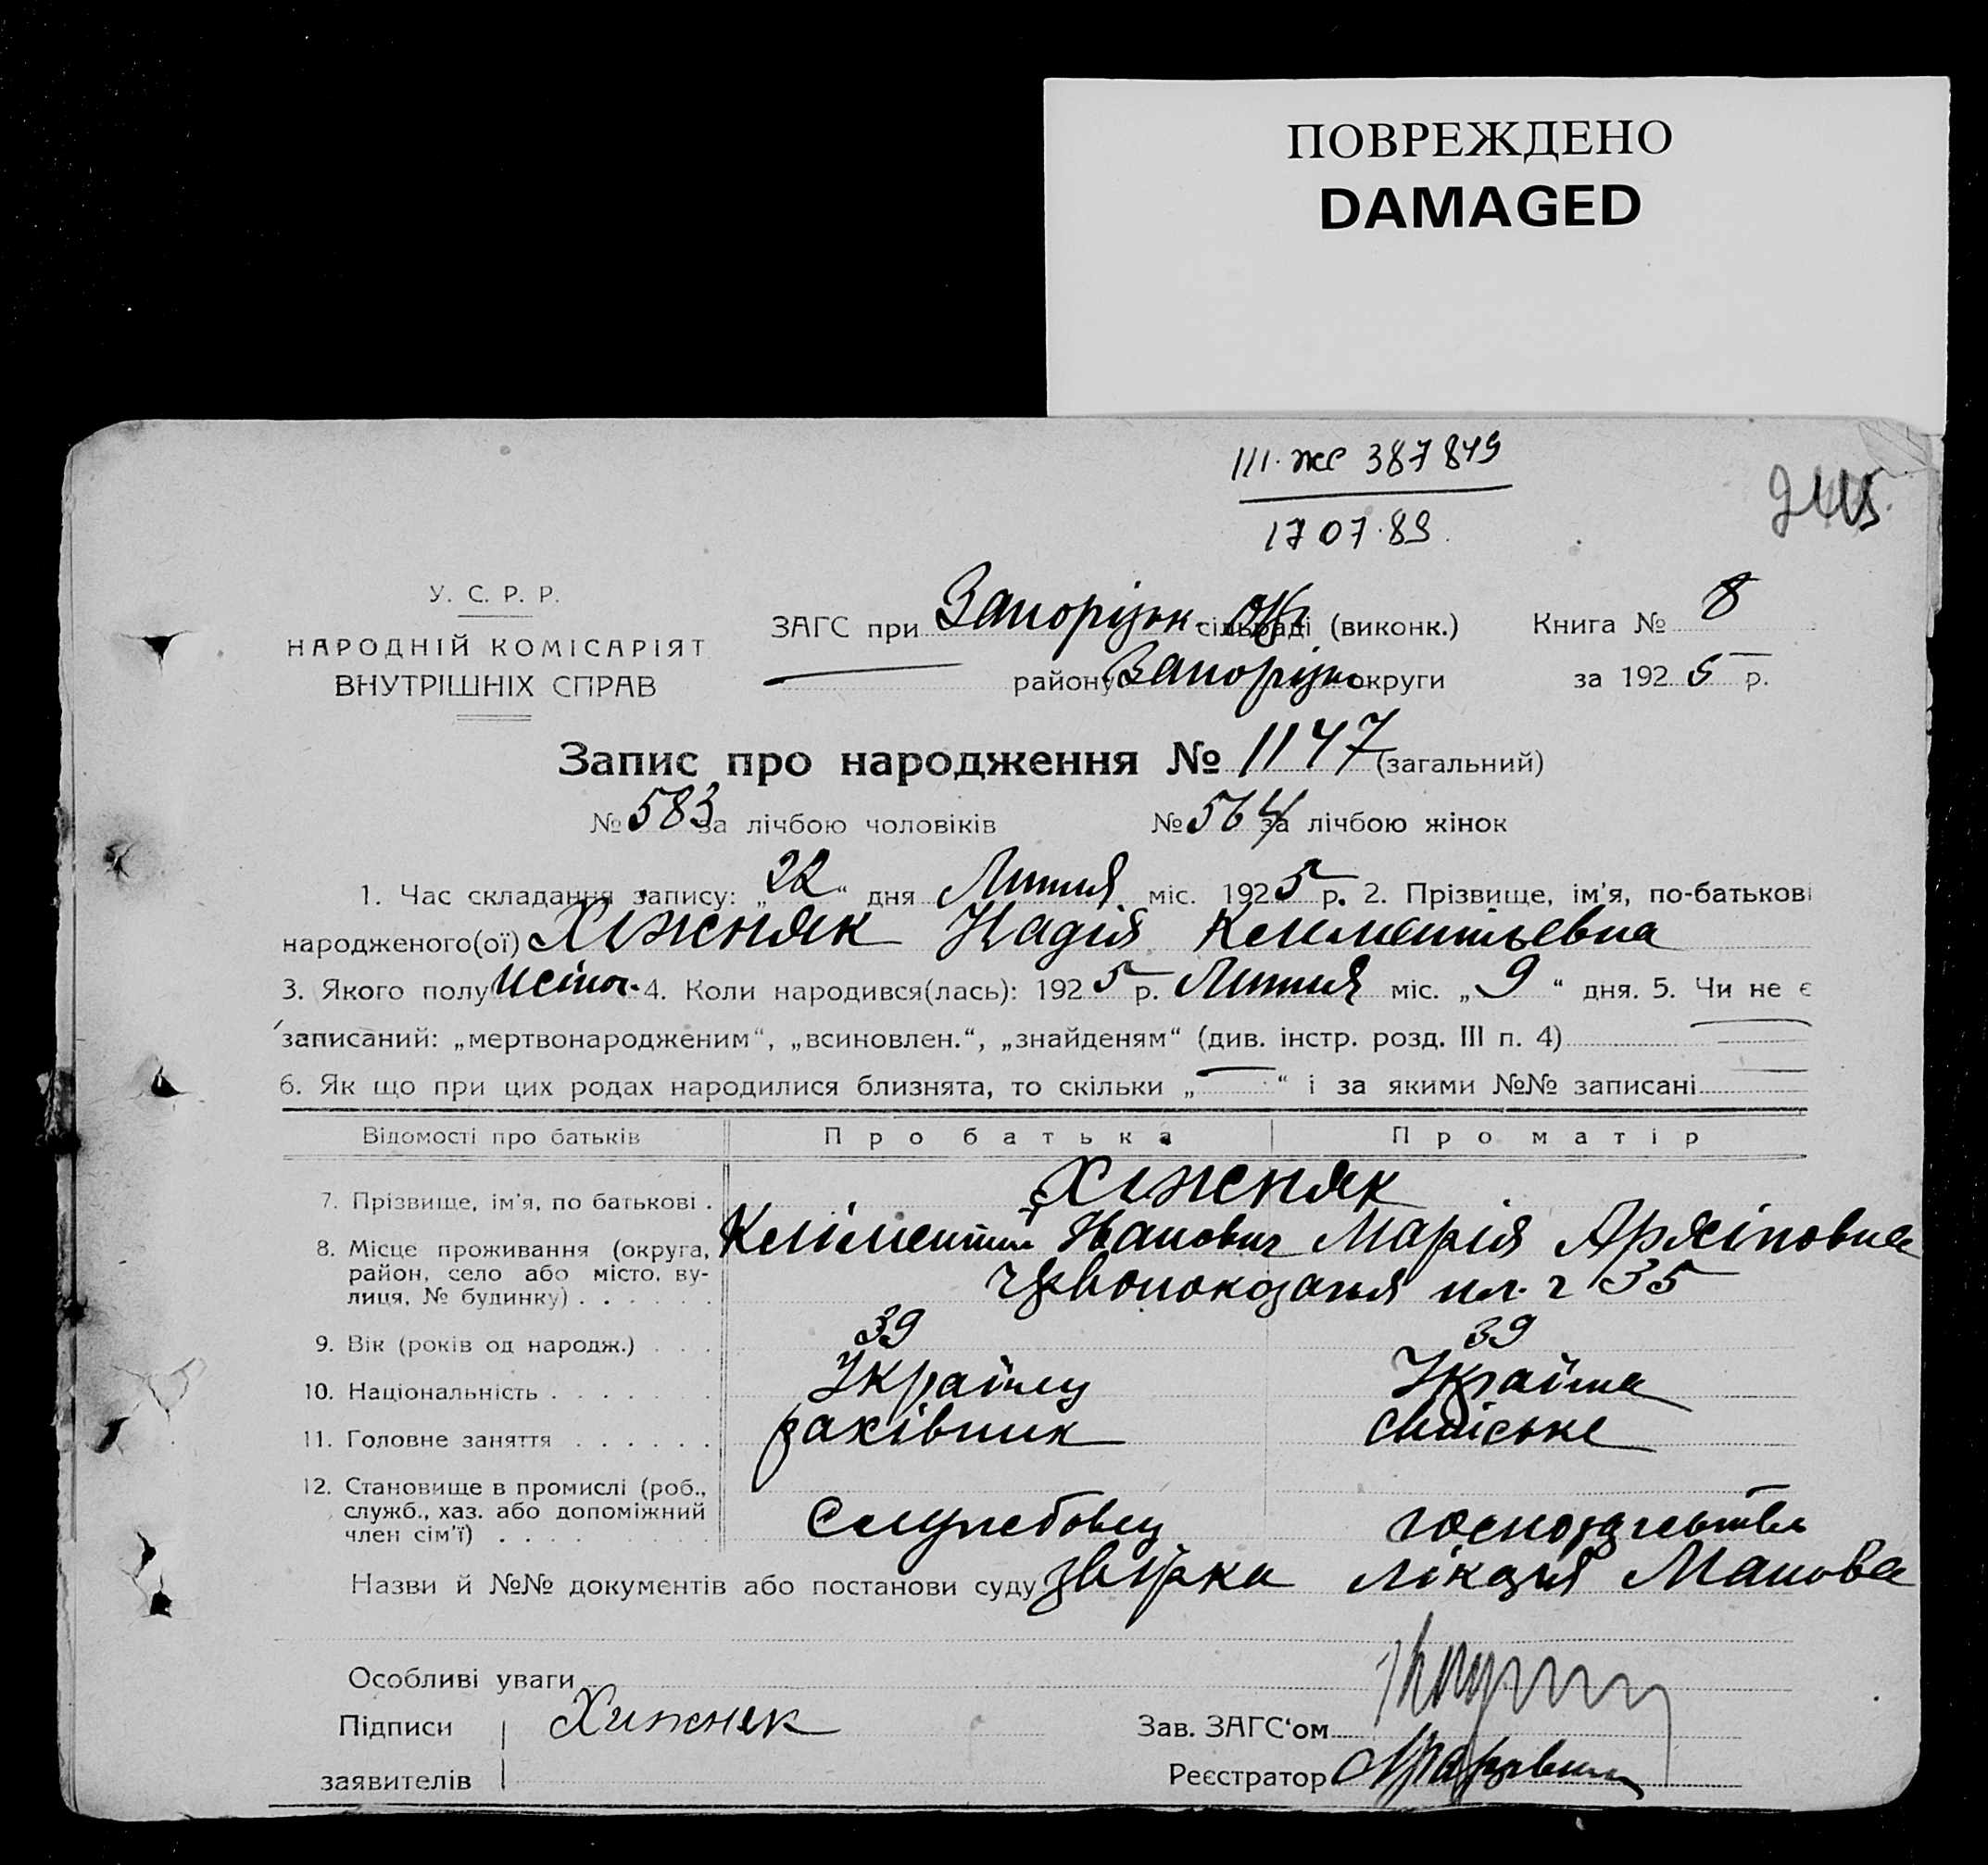 ПОВРЕЖДЕНО
DAMAGED
III·ЖС 387849
17 07·89.
У. С. Р. Р.
НАРОДНІЙ КОМІСАРІЯТ
ВНУТРІШНІХ СПРАВ
ЗАГС при Запорізьк. сільраді (виконк.) Книга № 8
району Запорізьк округи за 1925 р.
Запис про народження № 1147 (загальний)
№ 583 за лічбою чоловіків № 564 за лічбою жінок
1. Час складання запису: „22“ дня Липня міс. 1925 р. 2. Прізвище, ім'я, по-батькові
народженого(ої) Хіжняк Надія Климентьевна
3. Якого полу жіноч. 4. Коли народився(лась): 1925 р. Липня міс. „9“ дня. 5. Чи не є
записаний: „мертвонародженим“, „всиновлен.“, „знайденям“ (див. інстр. розд. III п. 4)
6. Як що при цих родах народилися близнята, то скільки „—“ і за якими №№ записані
Відомості про батьків Про батька Про матір
7. Прізвище, ім'я, по батькові . Хіжняк
8. Місце проживання (округа, район, село або місто, вулиця, № будинку) . . . . . . Іванович Марія Архіповна
пл. 35
9. Вік (років од народж.) . . . 39 39
10. Національність . . . . . . . Українец Українка
11. Головне заняття . . . . . . рахівник хатнєське
12. Становище в промислі (роб., служб., хаз. або допоміжний член сім'ї) . . . . Службовец господарство
Назви й №№ документів або постанови суду лікаря Манова
Особливі уваги
Підписи Хижняк
заявителів
Зав. ЗАГС'ом
Реєстратор